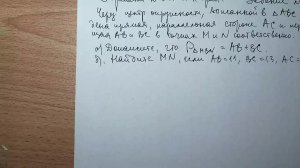 Через центр окружности, вписанной в Δ ABC
дена прямая, параллельная стороне AC и пер
щая AB и BC в точках M и N соответственно.
а) Докажите, что P BMN = AB + BC.
б). Найдите MN, если AB = 11, BC = 13, AC =